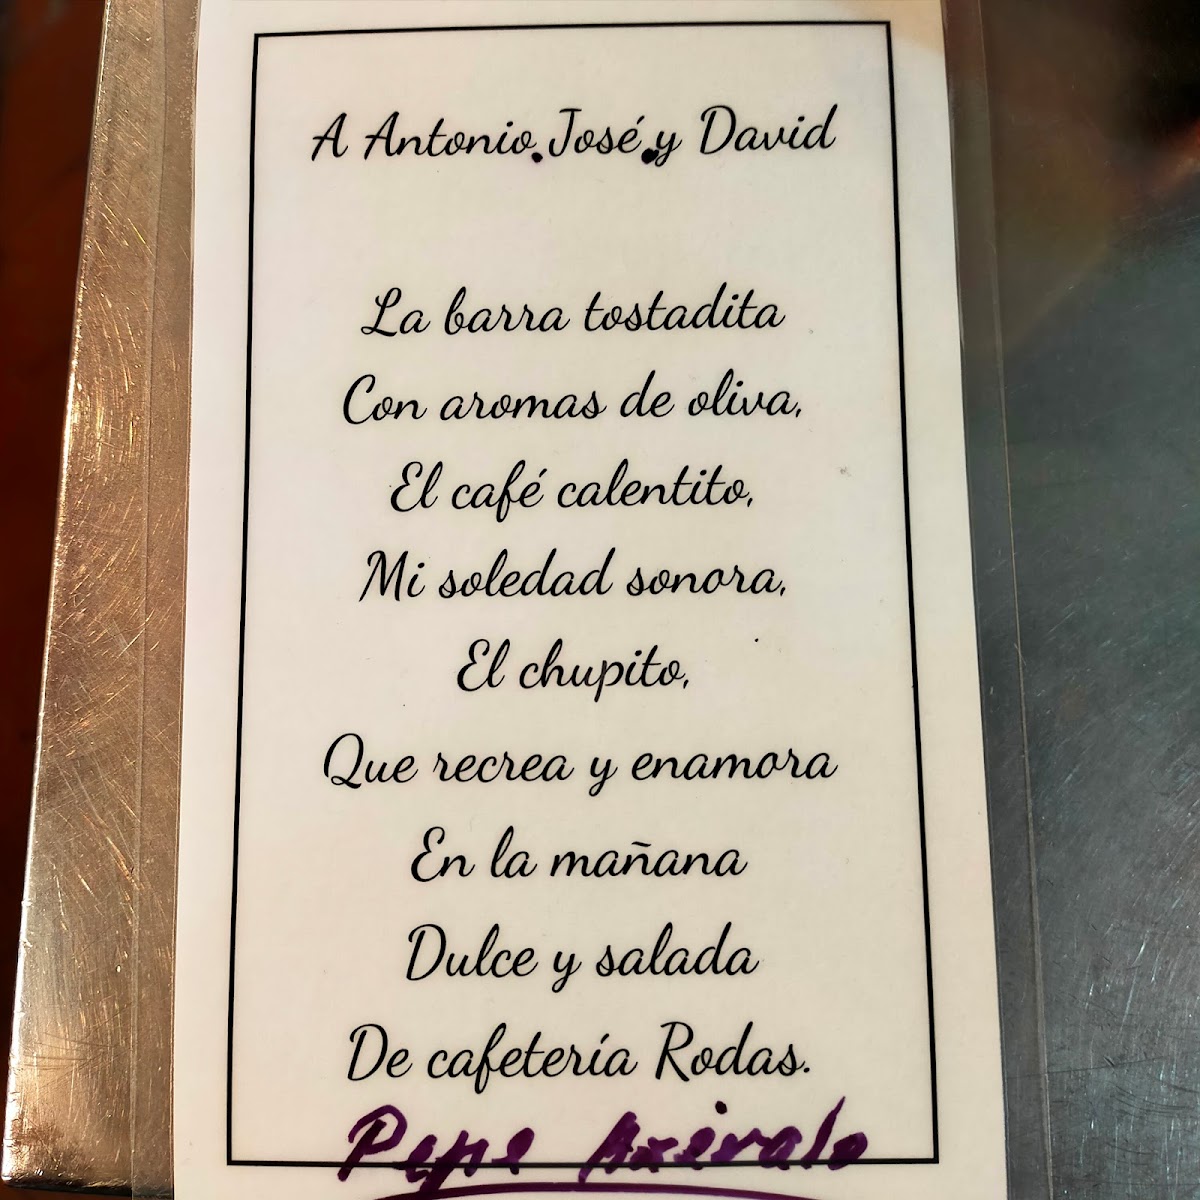 A Antonio. José. y David
La barra tostadita
Con aromas de oliva,
El café calentito,
Mi soledad sonora,
El chupito,
Que recrea y enamora
En la mañana
Dulce y salada
De cafetería Rodas.
Pepe Arévalo